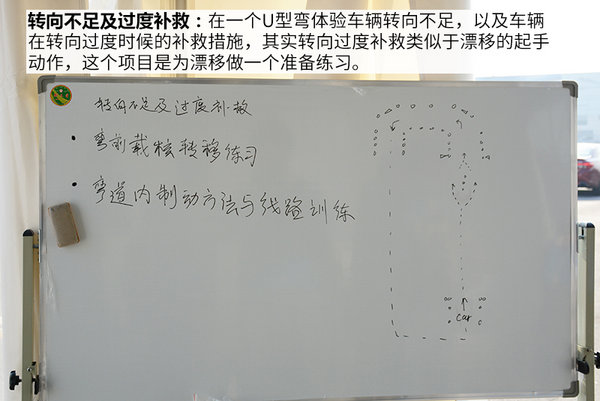 转向不足及过度补救：在一个U型弯体验车辆转向不足，以及车辆
在转向过度时候的补救措施，其实转向过度补救类似于漂移的起手
动作，这个项目是为漂移做一个准备练习。
转向不足及过度补救
• 弯前载荷转移练习
• 弯道内制动方法与线路训练
car